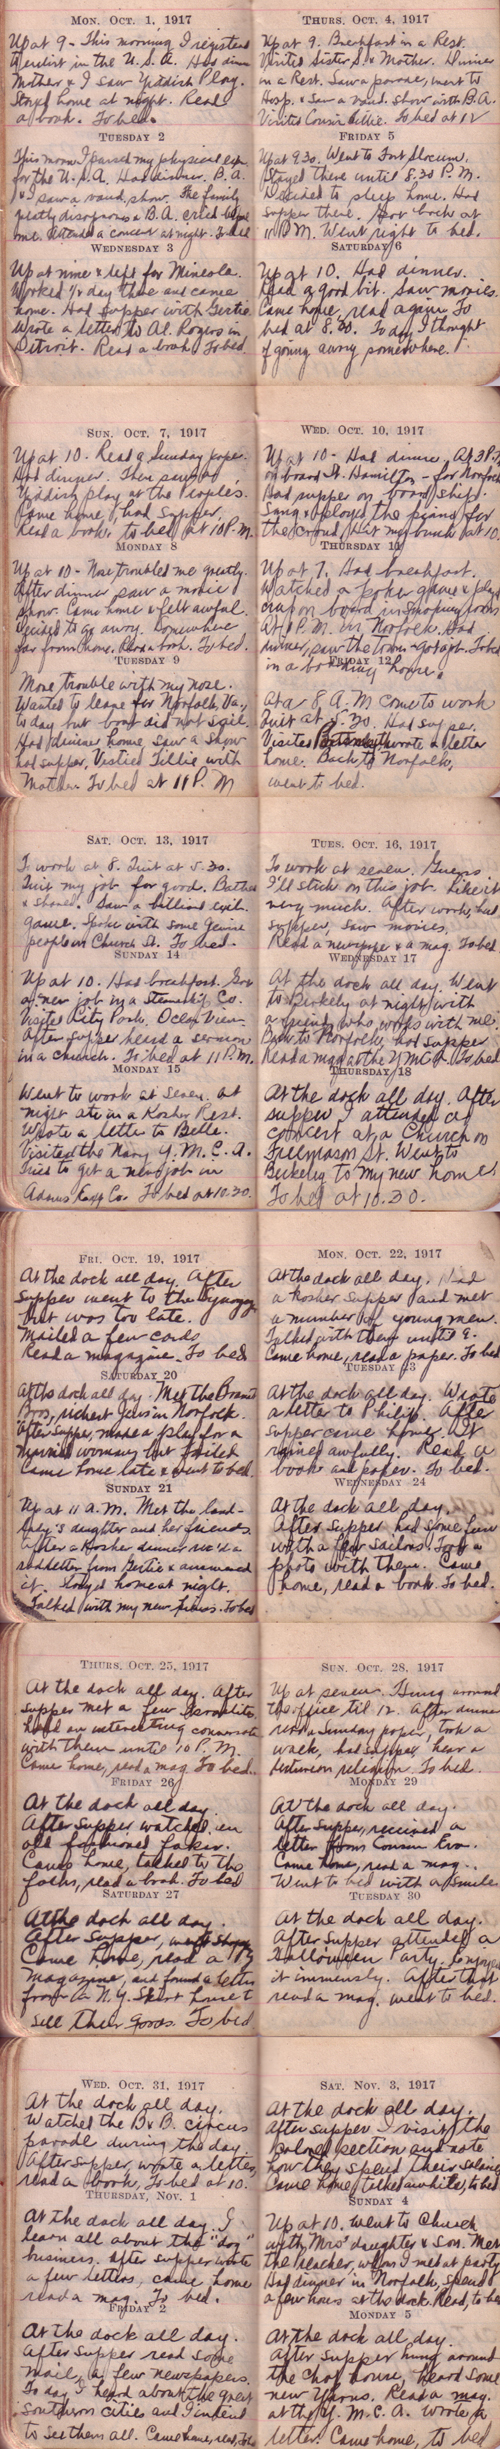 Mon. Oct. 1, 1917
Up at 9 - This morning I registered
to enlist in the U.S.A. Had dinner
Mother & I saw Yiddish Play.
Stayed home at night. Read
a book. To bed.
Tuesday 2
This morn I passed my physical exp.
for the U.S.A. Had dinner. B.A.
& I saw a vaud. show. The family
greatly disapproves & B.A. cried before
me. Attended a concert at night. To bed
Wednesday 3
Up at nine & left for Mineola.
Worked ½ day there and came
home. Had supper with Gertie
Wrote a letter to Al. Rogers in
Detroit. Read a book. To bed.
Thurs. Oct. 4, 1917
Up at 9. Breakfast in a Rest.
Visited Sister S. & Mother. Dinner
in a Rest. Saw a parade, went to
Hosp. & saw a vaud. show with B.A.
Visited Cousin Tillie. To bed at 12
Friday 5
Up at 9.30. Went to Fort Slocum.
Stayed there until 8.30 P.M.
Decided to sleep home. Had
supper there. Got back at
11 P.M. Went right to bed.
Saturday 6
Up at 10. Had dinner.
Read a good bit. Saw movies.
Came home, read again. To
bed at 8.30. Today I thought
of going away somewhere.
Sun. Oct. 7, 1917
Up at 10 - Read a Sunday paper.
Had dinner. Then saw a
Yiddish play at the People's.
Came home, had supper,
Read a book, to bed at 10 P.M.
Monday 8
Up at 10 - Nose troubled me greatly.
After dinner saw a movie
show. Came home & felt awful.
Decided to go away. Somewhere
far from home. Read a book. To bed.
Tuesday 9
More trouble with my nose.
Wanted to leave for Norfolk, Va.,
to day but boat did not sail.
Had dinner home, saw a show
had supper, Visited Tillie with
Mother. To bed at 11 P.M
Wed. Oct. 10, 1917
Up at 10 - Had dinner. At 3 P.M
on board St. Hamilton - for Norfolk
Had supper on board ship.
Sang & played the piano for
the crowd. Hit my bunk at 10.
Thursday 11
Up at 7. Had breakfast.
Watched a poker game & played
crap on board in smoking room
At 1 P.M. in Norfolk. Had
dinner, saw the town - got apt. To bed
in a boarding house.
Friday 12
At 8 A.M come to work
Quit at 5.30. Had supper.
Visited Portsmouth wrote a letter
home. Back to Norfolk,
went to bed.
Sat. Oct. 13, 1917
To work at 8. Quit at 5.30.
Quit my job for good. Bathed
& shaved. Saw a billiard exib.
game. Spoke with some
people on Church St. To bed.
Sunday 14
Up at 10. Had breakfast. Got
a new job in a Steamship Co.
Visited City Park. Ocean View.
After supper heard a sermon
in a church. To bed at 11 P.M.
Monday 15
Went to work at seven. At
night ate in a Kosher Rest.
Wrote a letter to Belle.
Visited the Navy Y.M.C.A.
Tried to get a new job in
Adams Exp Co. To bed at 10.30.
Tues. Oct. 16, 1917
To work at seven. Guess
I'll stick on this job. Like it
very much. After work, had
supper, saw movies.
Read a newspaper & a mag. To bed
Wednesday 17
At the dock all day. Went
to Berkely at night with
a friend who works with me.
Back to Norfolk, had supper
Read a mag at the YMCA. To bed
Thursday 18
At the dock all day. After
supper I attended a
concert at a Church on
Freemason St. Went to
Berkely to my new home.
To bed at 10.30.
Fri. Oct. 19, 1917
At the dock all day. After
supper went to the Synagog
but was too late.
Mailed a few cards
Read a magazine. To bed
Saturday 20
At the dock all day. Met the
Bros, richest Jews in Norfolk.
After supper, made a play for a
married woman, but failed
Came home late & went to bed.
Sunday 21
Up at 11 A.M. Met the land-
lady's daughter and her friends.
After a Kosher dinner rec'd a
sad letter from Gertie & answered
it. Stayed home at night.
Talked with my new friends. To bed
Mon. Oct. 22, 1917
At the dock all day. Had
a kosher supper and met
a number of young men.
Talked with them until 9.
Came home, read a paper. To bed
Tuesday 23
At the dock all day. Wrote
a letter to Philip. After
supper came home. It
rained awfully. Read a
book and paper. To bed.
Wednesday 24
At the dock all day.
After supper had some fun
with a few sailors. Took a
photo with them. Came
home, read a book. To bed.
Thurs. Oct. 25, 1917
At the dock all day. After
supper met a few Israelites
had an interesting conversate
with them until 10 P.M.
Came home, read a mag. To bed.
Friday 26
At the dock all day.
After supper watched an
old fashioned fakir.
Came home, talked to the
folks, read a book. To bed
Saturday 27
At the dock all day.
After Supper, went shopp
Came home, read a
magazine, and found a letter
from a N.Y. Skirt house to
sell their goods. To bed
Sun. Oct. 28, 1917
Up at seven. Hung around
the office til 12. After dinner
read a Sunday paper, took a
walk, had supper, hear a
lecture on religion. To bed.
Monday 29
At the dock all day.
After supper, received a
letter from Cousin Eva.
Came home, read a mag.
Went to bed with a smile
Tuesday 30
At the dock all day.
After supper attended a
Halloween Party. Enjoyed
it immensly. After that
read a mag. went to bed.
Wed. Oct. 31, 1917
At the dock all day.
Watched the B & B. circus
parade during the day.
After supper, wrote a letter,
read a book, To bed at 10.
Thursday, Nov. 1
At the dock all day. I
learn all about the "dog"
business. After supper wrote
a few letters, came home
read a mag. To bed.
Friday 2
At the dock all day.
After supper read some
mail, a few newspapers.
To day I heard about the great
southern cities and I intend
to see them all. Came home, read, To bed
Sat. Nov. 3, 1917
At the dock all day.
After supper I visit the
colored section and note
how they spend their salaries
Came home, talked awhile, to bed
Sunday 4
Up at 10. Went to Church
with Mrs' daughter & Son. Met
the slacker, whom I met at party
Had dinner in Norfolk, spend
a few hours at the dock. Read, to bed
Monday 5
At the dock all day.
After supper hung around
the chop house, heard some
new yarns. Read a mag.
at the Y.M.C.A. Wrote a
letter. Came home, to bed